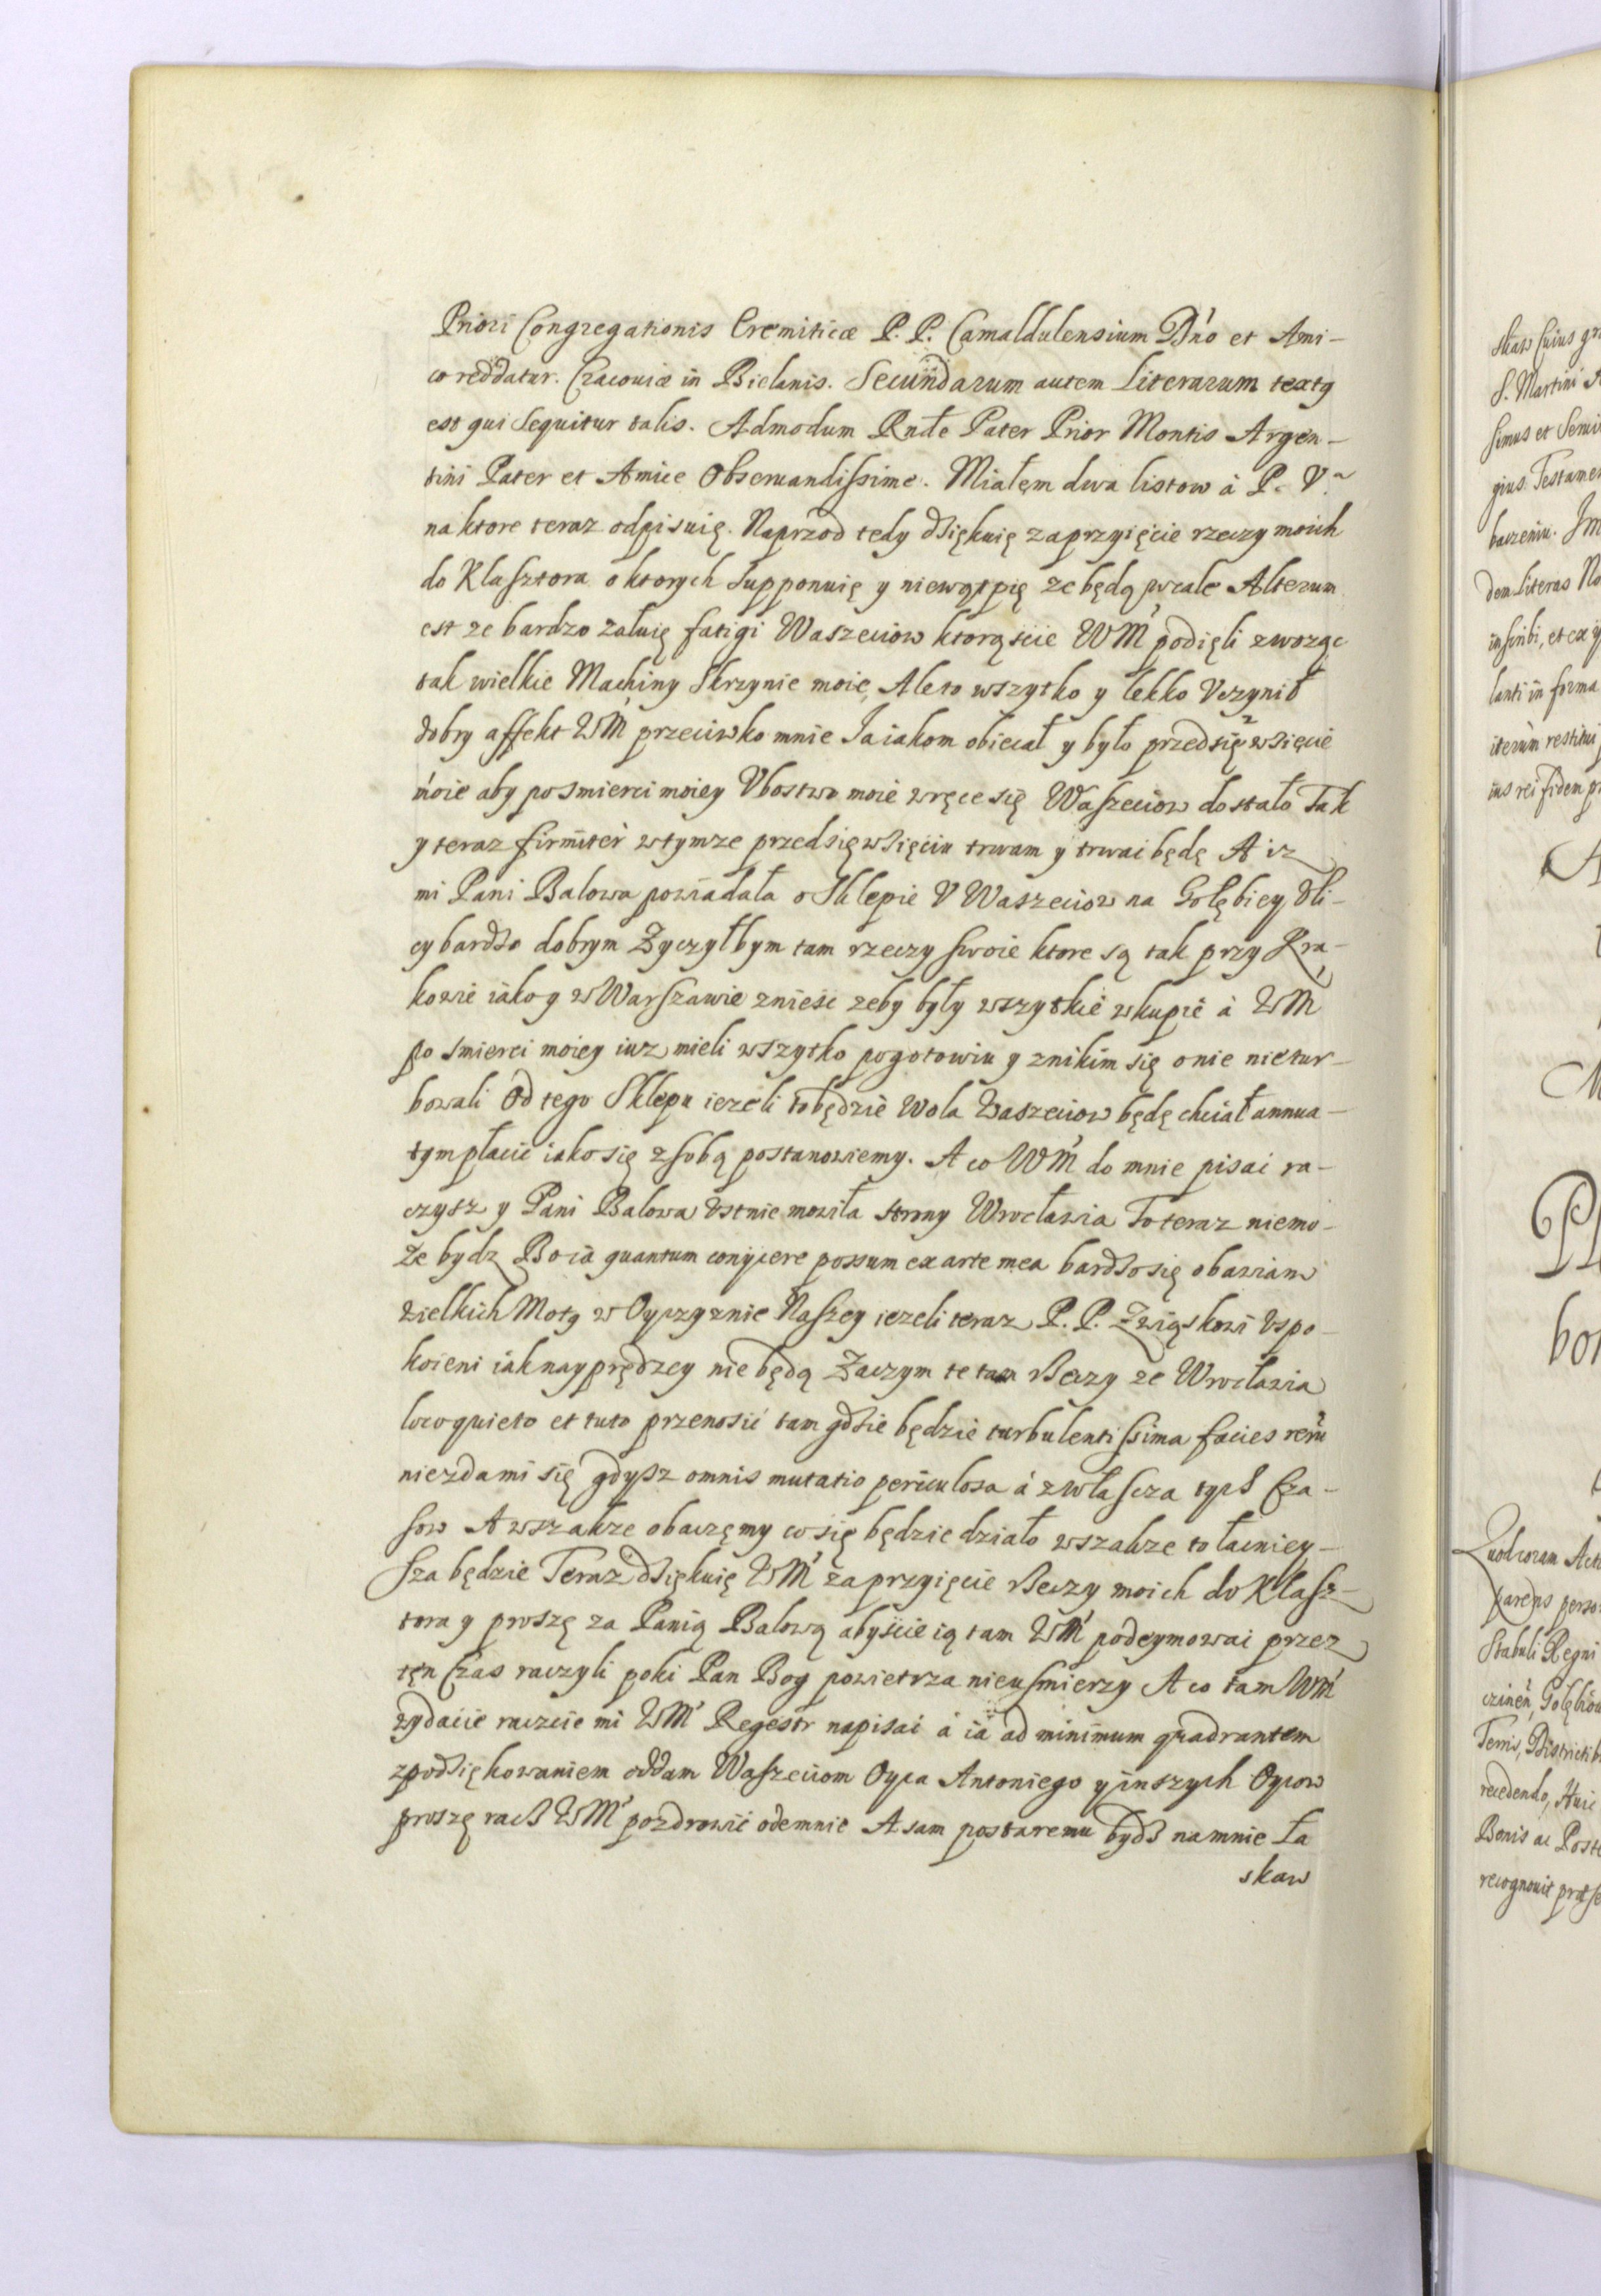 Priori Congregationis Eremiticæ P. P. Camaldulensium Dn̄o et Ami-
co reddatur. Cracoviæ in Bielanis. Secundarum autem Literarum textq
est qui sequitur talis. Admodum Rnde Pater Prior Montis Argen-
tini Pater et Amice Obseruandissime. Miałem dwa listow à P. V.
na ktore teraz odpisuię. Naprzod tedy dziękuię za przyięcie rzeczy moich
do Klasztora o ktorych supponuię y niewątpię ze będą wcale Alterum
est ze bardzo załuię fatigi Waszeciow ktorąscie WM podięli zwoząc
tak wielkie Machiny Skrzynie moie, Ale to wszytko y lekko Vczynił
dobry affekt WM przeciwko mnie Ja iakom obiecał y było przedsięwzięcie
moie aby po smierci moiey Vbostwo moie w ręce się Waszeciow dostało Tak
y teraz firmiter w tymze przedsięwzięciu trwam y trwać będę A iz
mi Pani Balowa powiadała o Sklepie V Waszeciow na Gołębiey Vli-
cy bardzo dobrym Zyczyłbym tam rzeczy swoie ktore są tak przy Kra-
kowie iako y w Warszawie znieść zeby były wszytkie wkupie à WM
po smierci moiey iuz mieli wszytko pogotowiu y znikim się o nie nietur-
bowali Od tego Sklepu iezeli to będzie wola Waszeciow będę chciał annua-
tym płacić iako się z sobą postanowiemy. A co WM do mnie pisać ra-
czysz y Pani Balowa Vstnie mowiła strony Wrocławia To teraz niemo-
ze bydz Bo ia quantum conijcere possum ex arte mea bardzo się obawiam
wielkich Motq w Oyczyznie Naszey iezeli teraz P. P. Związkowi Vspo-
koieni iaknayprędzey nie będą Zaczym te tam Rzeczy ze Wrocławia
loco quieto et tuto przenosić tam gdzie będzie turbulentissima facies rerū
niezda mi się gdysz omnis mutatio periculosa à zwłascza tych Cza-
sow A wszakze obaczęmy co się będzie działo wszakze to łacniey-
sza będzie Teraz dziękuię WM za przyięcie Rzeczy moich do Klasz-
tora y proszę za Panią Balową abyscie ią tam WM podeymować przez
tęn Czas raczyli poki Pan Bog powietrza nieusmierzy A co tam WM
wydacie raczcie mi WM Regestr napisać à ià ad minimum quadrantem
z podziękowaniem oddam Waszeciom Oyca Antoniego y inszych Oycow
proszę racz WM pozdrowić odemnie A sam postaremu bydz na mnie ła
skaw